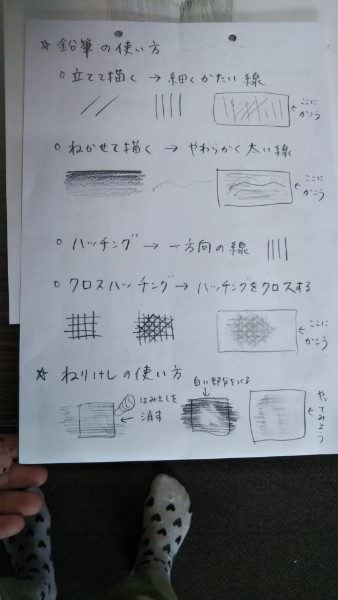 ☆ 鉛筆の使い方
○ 立てて描く → 細くかたい線
← ここに
かこう
○ ねかせて描く → やわらかく太い線
← ここに
かこう
○ ハッチング → 一方向の線
○ クロスハッチング → ハッチングをクロスする
← ここに
かこう
☆ ねりけしの使い方
はみ出しを
← 消す
白い部分をつくる
↓
← やってみよう